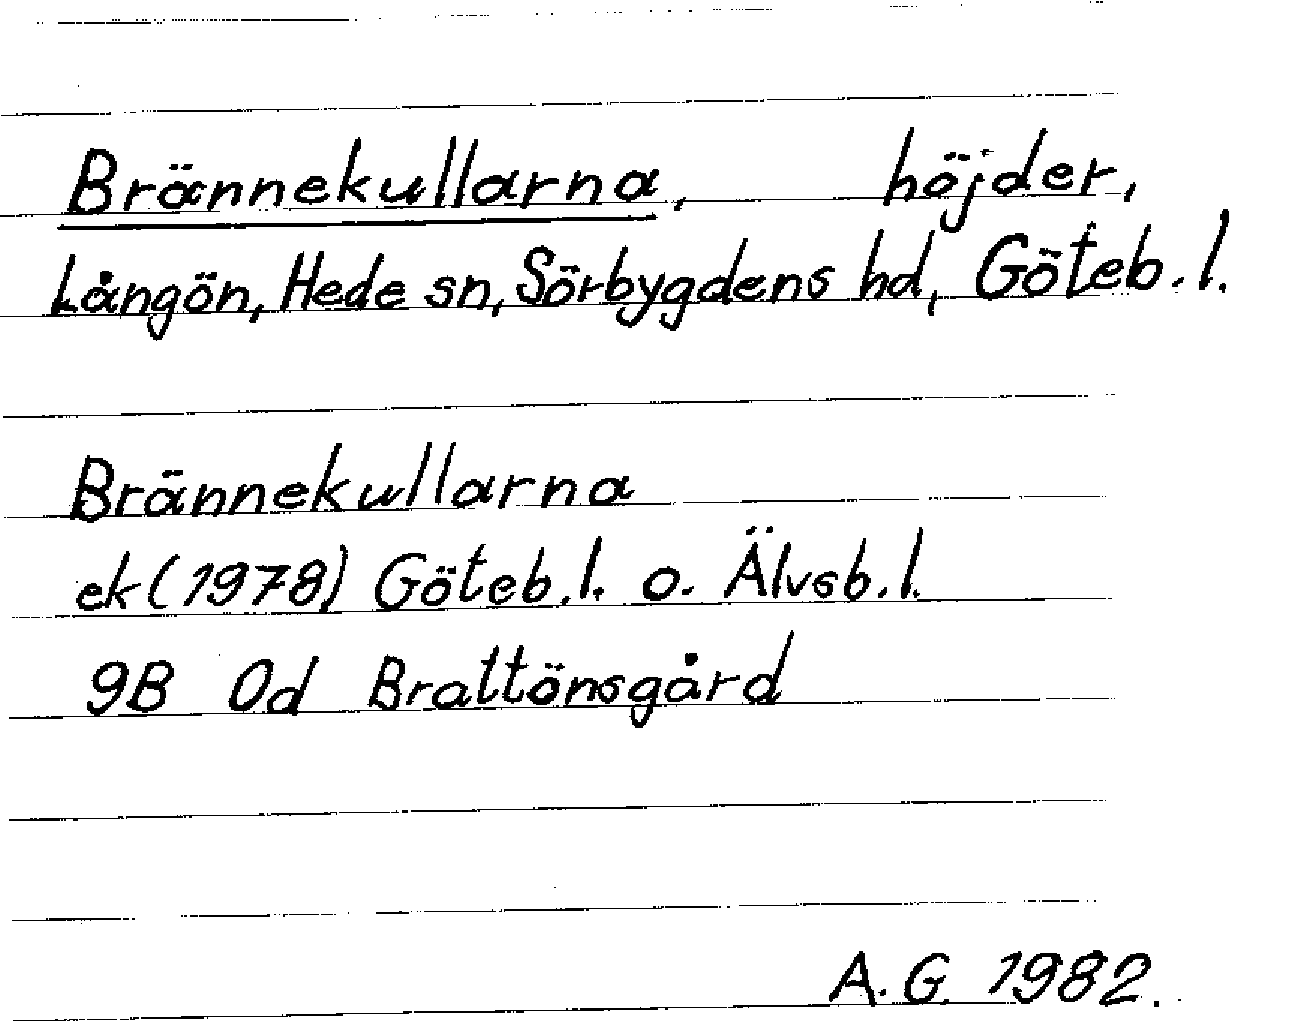 Brännekullarna, höjder,
Långön, Hede sn, Sörbygdens hd, Göteb. l.
Brännekullarna
ek (1978) Göteb. l. o. Älvsb. l.
9B 0d Brattönsgård
A. G. 1982.